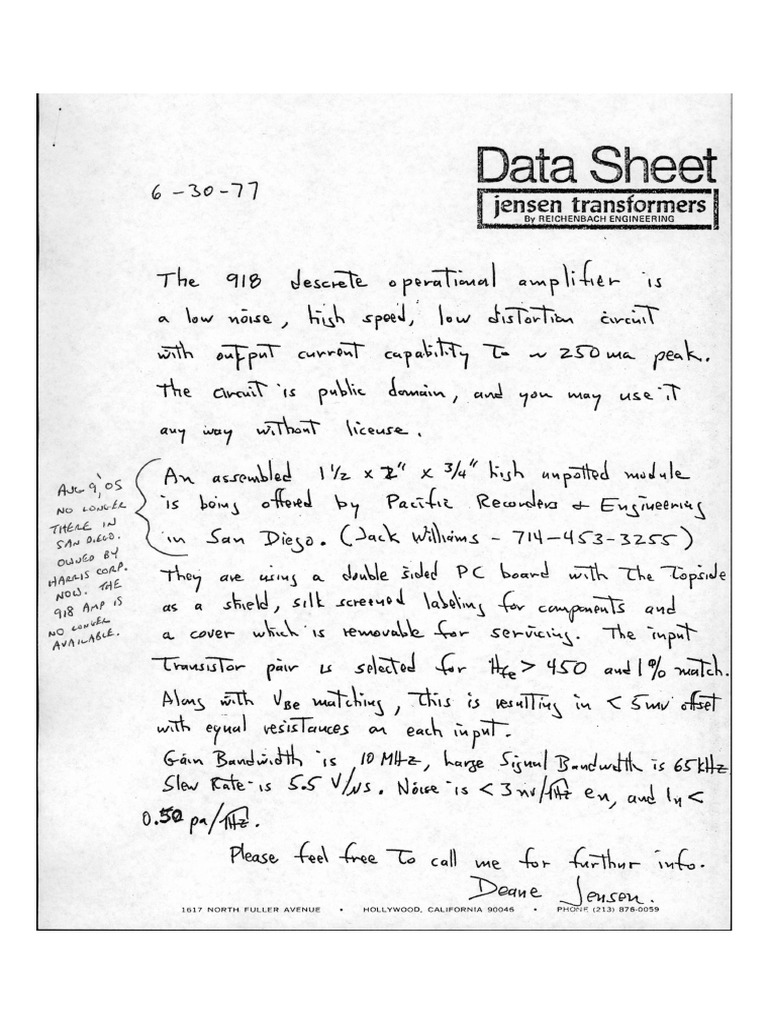 6-30-77
Data Sheet
jensen transformers
By REICHENBACH ENGINEERING
The 918 descrete operational amplifier is
a low noise, high speed, low distortion circuit
with output current capability to ~ 250 ma peak.
The circuit is public domain, and you may use it
any way without license.
An assembled 1 1/2 x 2" x 3/4" high unpotted module
is being offered by Pacific Recorders & Engineering
in San Diego. (Jack Williams - 714-453-3255)
AUG 9, '05
NO LONGER
THERE IN
SAN DIEGO.
OWNED BY
HARRIS CORP.
NOW. THE
918 AMP IS
NO LONGER
AVAILABLE.
They are using a double sided PC board with the topside
as a shield, silk screened labeling for components and
a cover which is removable for servicing. The input
transistor pair is selected for Hfe > 450 and 1% match.
Along with VBE matching, this is resulting in < 5mv offset
with equal resistances on each input.
Gain Bandwidth is 10 MHz, Large Signal Bandwidth is 65 kHz
Slew Rate is 5.5 V/us. Noise is < 3 nv/√Hz en, and In <
0.50 pa/√Hz.
Please feel free to call me for furthur info.
Deane Jensen.
1617 NORTH FULLER AVENUE • HOLLYWOOD, CALIFORNIA 90046 • PHONE (213) 876-0059